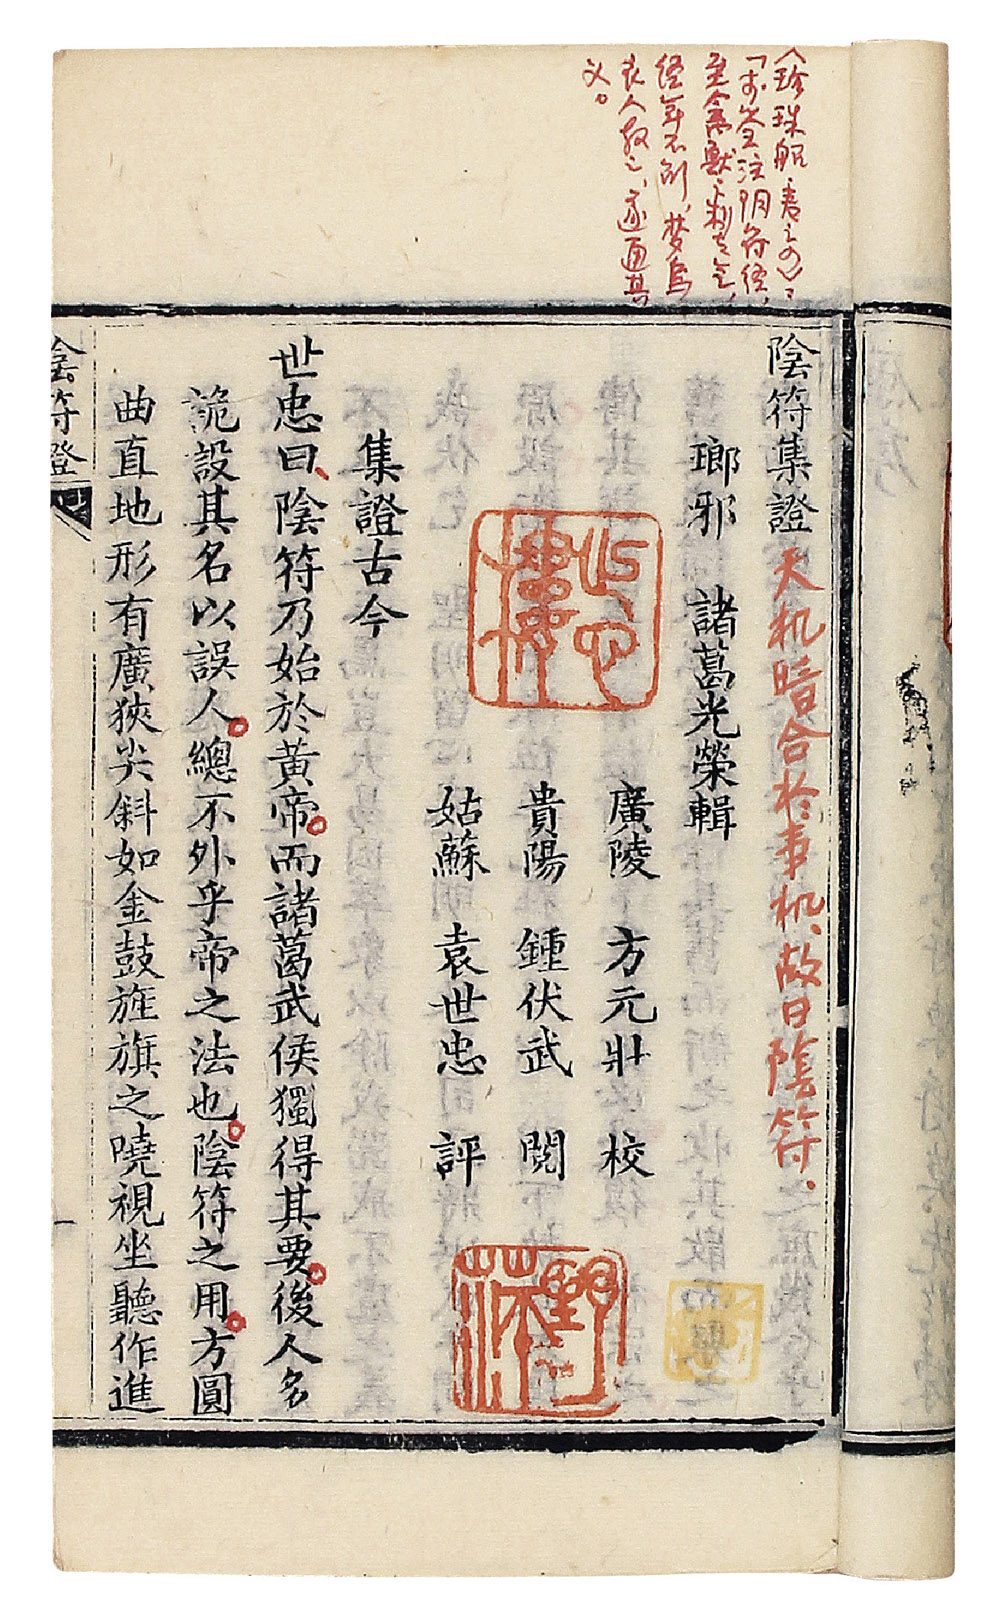 《珍珠船·卷之四》：
「李筌注阴符经，
至禽獸之制在氣，
经年不解，梦烏
衣人教之，遂通其
义。
陰符集證
天机暗合於事机、故曰陰符、
瑯邪 諸葛光榮輯
廣陵 方元壯 校
貴陽 鍾伏武 閱
姑蘇 袁世忠 評
集證古今
世忠曰、陰符乃始於黃帝。而諸葛武侯獨得其要。後人名
詭設其名以誤人。總不外乎帝之法也。陰符之用。方圓
曲直地形有廣狹尖斜如金鼓旌旗之曉視坐聽作進
陰符證
一